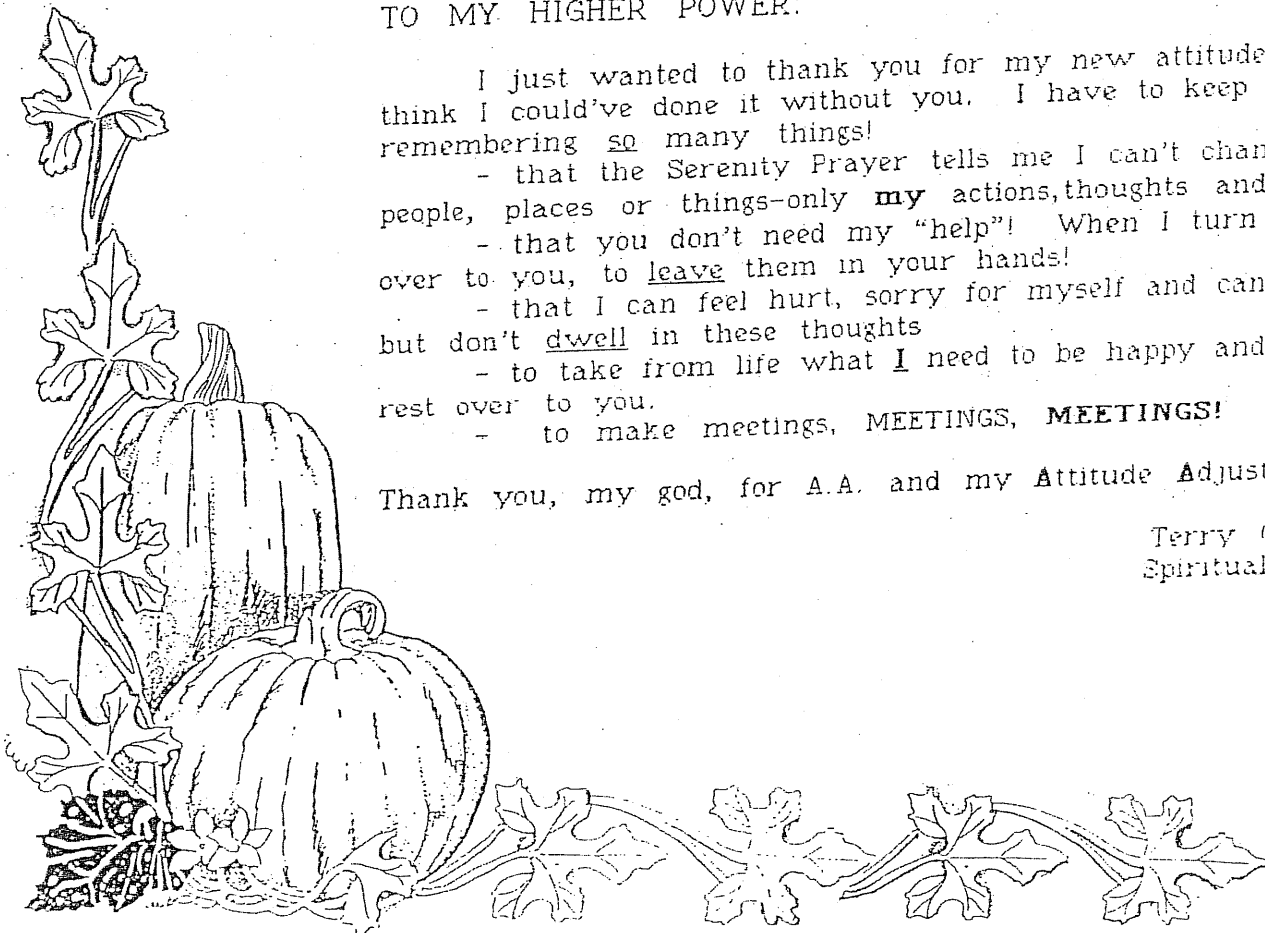 TO MY HIGHER POWER.
I just wanted to thank you for my new attitude
think I could've done it without you. I have to keep
remembering so many things!
- that the Serenity Prayer tells me I can't chan
people, places or things-only my actions, thoughts and
- that you don't need my "help"! When I turn
over to you, to leave them in your hands!
- that I can feel hurt, sorry for myself and can
but don't dwell in these thoughts
- to take from life what I need to be happy and
rest over to you.
- to make meetings, MEETINGS, MEETINGS!
Thank you, my god, for A.A. and my Attitude Adjust
Terry
Spiritual